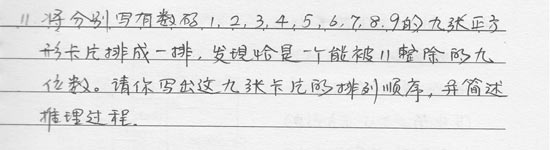 11. 将分别写有数码1,2,3,4,5,6,7,8,9的九张正方
形卡片排成一排,发现恰是一个能被11整除的九
位数。请你写出这九张卡片的排列顺序,并简述
推理过程.